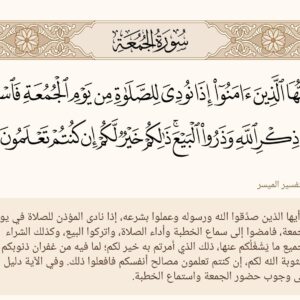 سُورَةُ الجُمُعَةِ
ٱلَّذِينَ ءَامَنُوٓاْ إِذَا نُودِيَ لِلصَّلَوٰةِ مِن يَوۡمِ ٱلۡجُمُعَةِ
ذِكۡرِ ٱللَّهِ وَذَرُواْ ٱلۡبَيۡعَۚ ذَٰلِكُمۡ خَيۡرٞ لَّكُمۡ إِن كُنتُمۡ تَعۡلَمُونَ
الميسر
أيها الذين صدَّقوا الله ورسوله وعملوا بشرعه، إذا نادى المؤذن للصلاة في
فامضوا إلى سماع الخطبة وأداء الصلاة، واتركوا البيع، وكذلك الشراء
ما يَشْغَلُكم عنها، ذلك الذي أمرتم به خير لكم؛ لما فيه من غفران ذنوبكم
الله لكم، إن كنتم تعلمون مصالح أنفسكم فافعلوا ذلك. وفي الآية دليل
وجوب حضور الجمعة واستماع الخطبة.